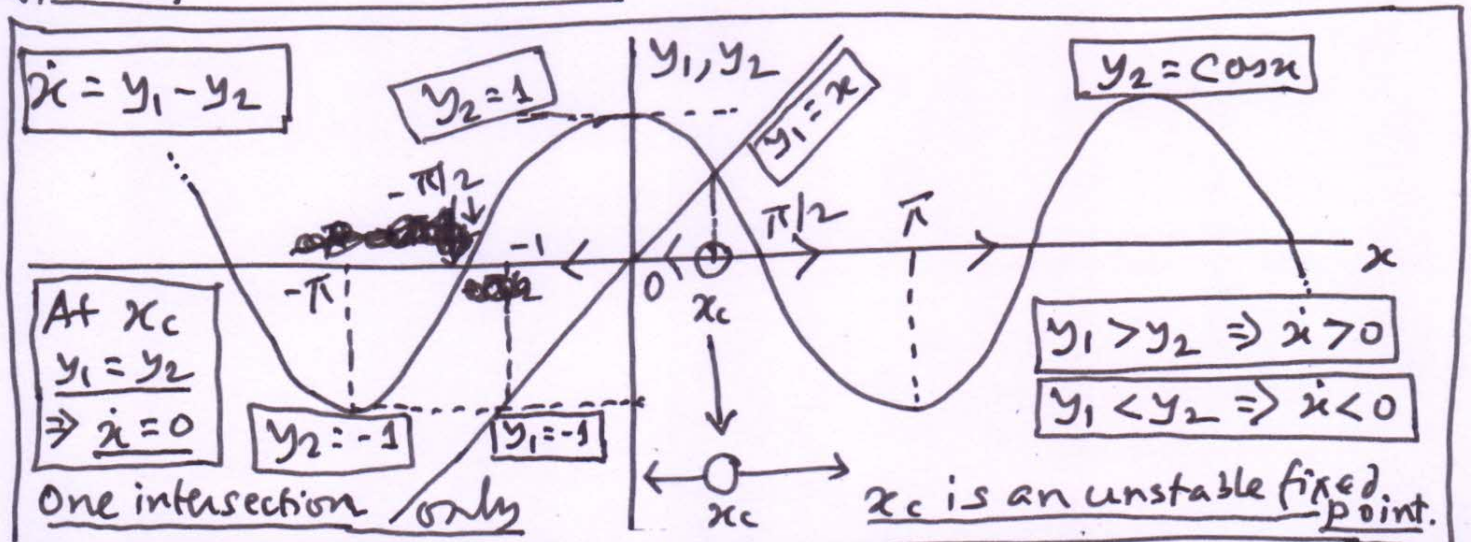 ẋ = y₁ - y₂
y₂ = 1
y₁, y₂
y₁ = x
y₂ = cosx
-π/2
-1
π/2
π
-π
0
x_c
x
At x_c
y₁ = y₂
⇒ ẋ = 0
y₂ = -1
y₁ = -1
y₁ > y₂ ⇒ ẋ > 0
y₁ < y₂ ⇒ ẋ < 0
x_c
One intersection only
x_c is an unstable fixed point.